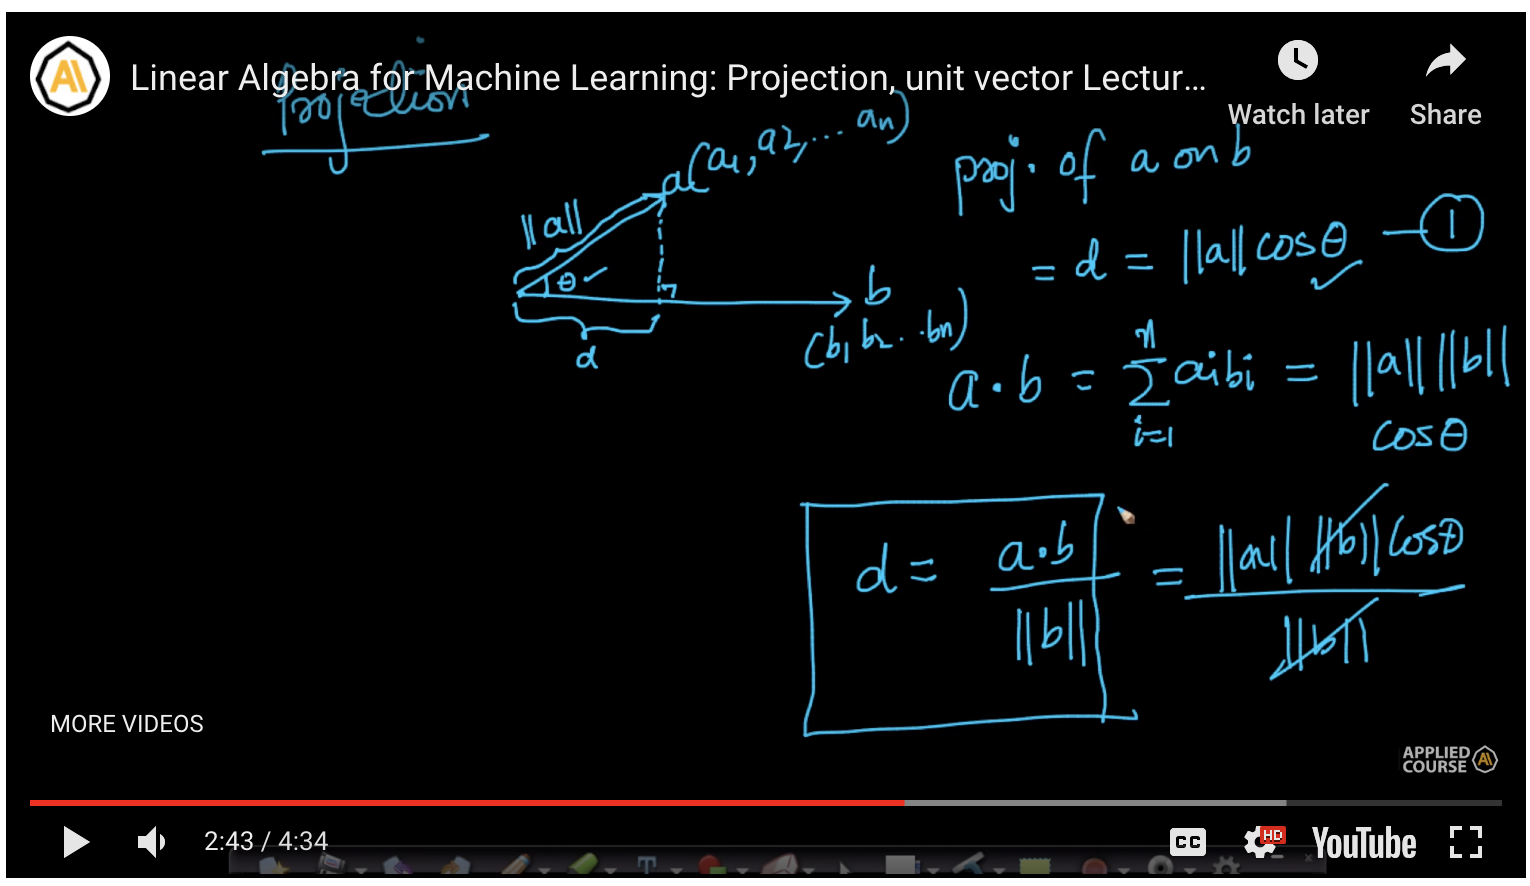 Linear Algebra for Machine Learning: Projection, unit vector Lectur...
Watch later
Share
Projection
a(a1, a2, ... an)
proj. of a on b
||a||
θ
= d = ||a|| cosθ — 1
b
(b1 b2 .. bn)
d
a · b = n Σ i=1 aibi = ||a|| ||b||
cosθ
d = a·b / ||b|| = ||a|| ||b|| cosθ / ||b||
MORE VIDEOS
APPLIED
COURSE AI
2:43 / 4:34
CC
HD
YouTube